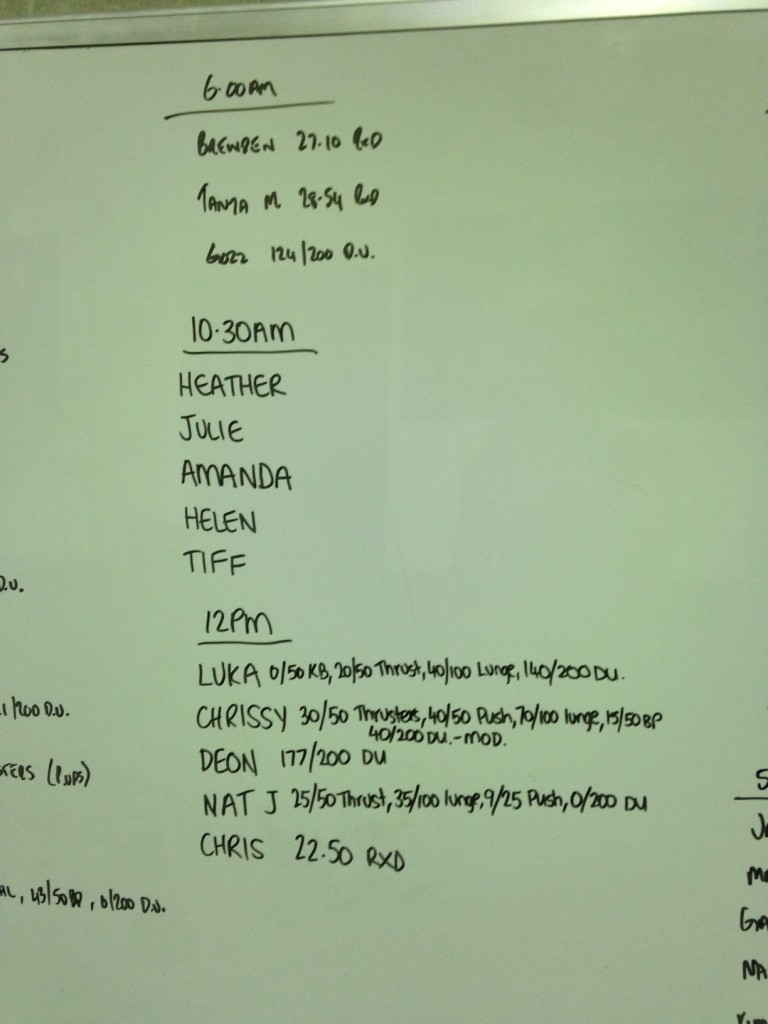 6.00AM
BRENDEN 27.10 RXD
TANYA M 28.54 RXD
GOZZ 124/200 D.U.
10.30AM
HEATHER
JULIE
AMANDA
HELEN
TIFF
12PM
LUKA 0/50 KB, 20/50 Thrust, 40/100 Lunge, 140/200 DU.
CHRISSY 30/50 Thrusters, 40/50 Push, 70/100 lunge, 15/50 BP
40/200 DU. - MOD.
DEON 177/200 DU
NAT J 25/50 Thrust, 35/100 lunge, 9/25 Push, 0/200 DU
CHRIS 22.50 RXD
D.U.
1/200 D.U.
, 43/50 BP, 0/200 D.U.